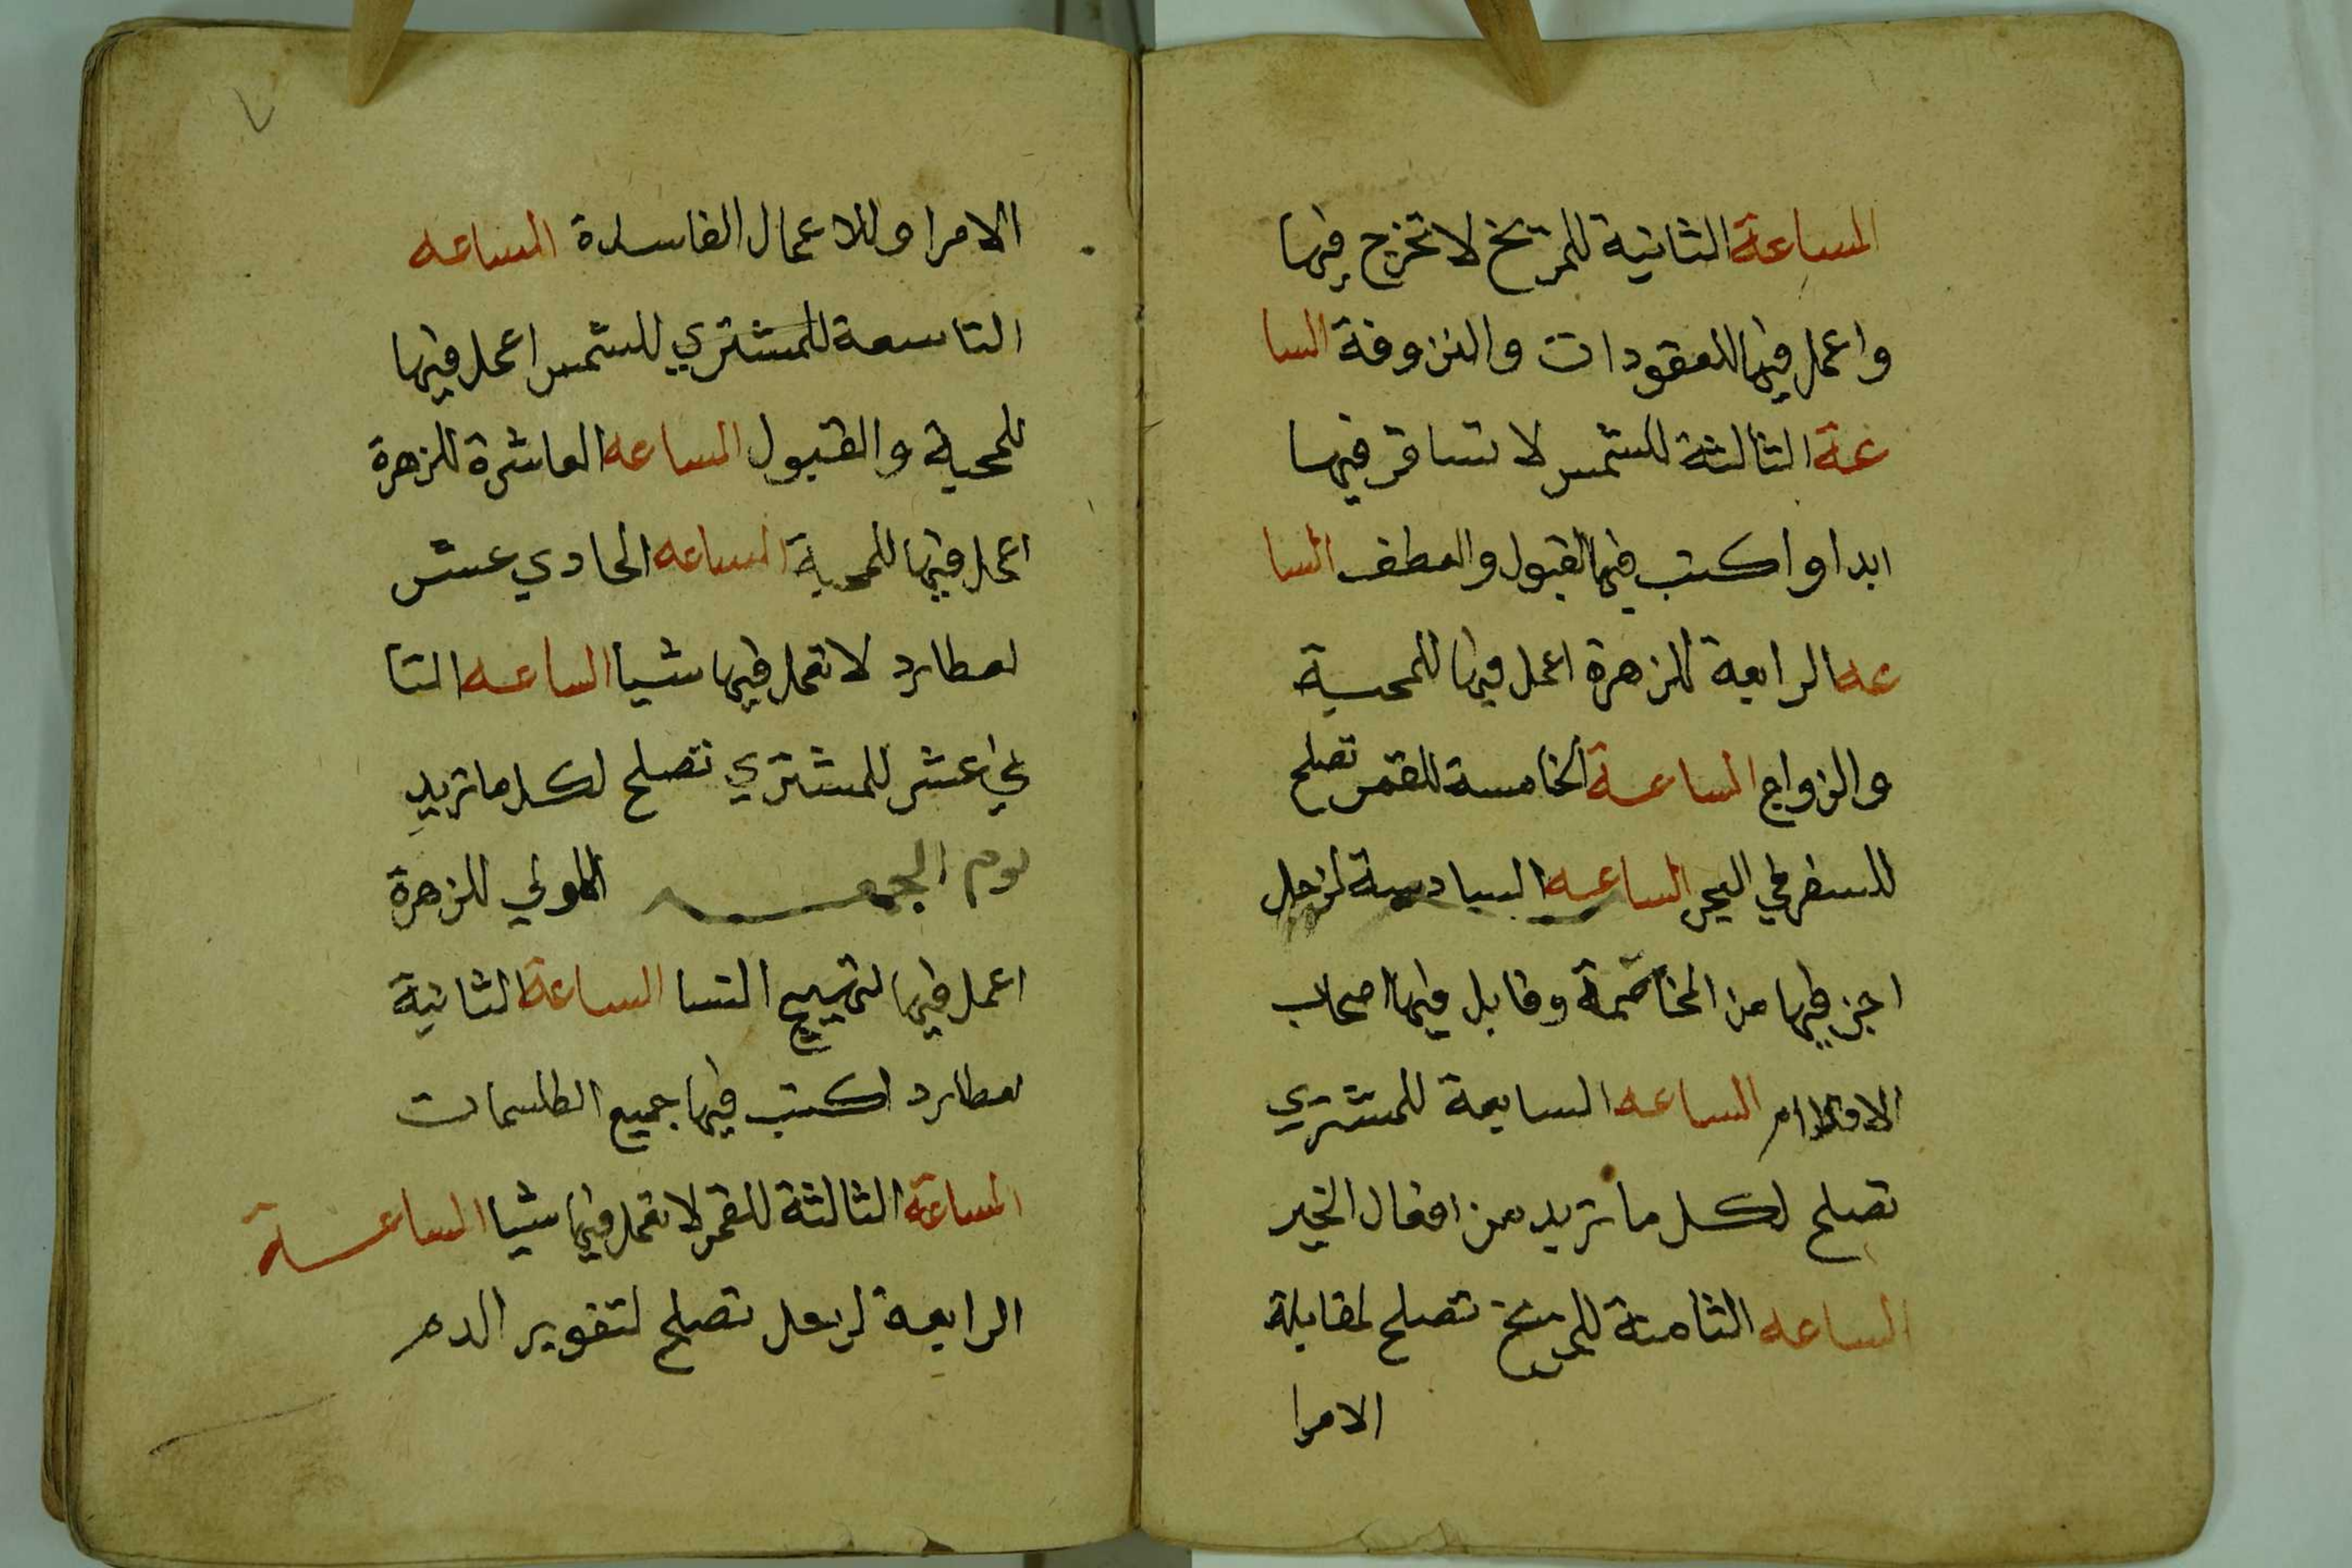 الساعة الثانية للمريخ لا تخرج فيها
واعمل فيها للعقودات والنزوفة السا
عة الثالثة للشمس لا تسافر فيها
ابدا واكتب فيها لقبول والعطف السا
عه الرابعة للزهرة اعمل فيها للمحبة
والزواج الساعة الخامسة للقمر تصلح
للسفر في البحر الساعه السادسة لزحل
احز فيها من المخاصمة وقابل فيها اصحاب
الاقلام الساعه السابعة للمشتري
تصلح لكل ما تريد من افعال الخير
الساعه الثامنة للمريخ تصلح لمقابلة
الامرا
٧
الامرا وللاعمال الفاسدة الساعه
التاسعة للمشتري للشمس اعمل فيها
للمحبة والقبول الساعه العاشرة للزهرة
اعمل فيها للمحبة الساعه الحادي عشر
لعطارد لا تعمل فيها شيا الساعه الثا
ني عشر للمشتري تصلح لكل ما تريد
يوم الجمعه الاولي للزهرة
اعمل فيها لتهييج النسا الساعة الثانية
لعطارد اكتب فيها جميع الطلسمات
الساعة الثالثة للقمر لا تعمل فيها شيا الساعة
الرابعة لزحل تصلح لتغوير الدم